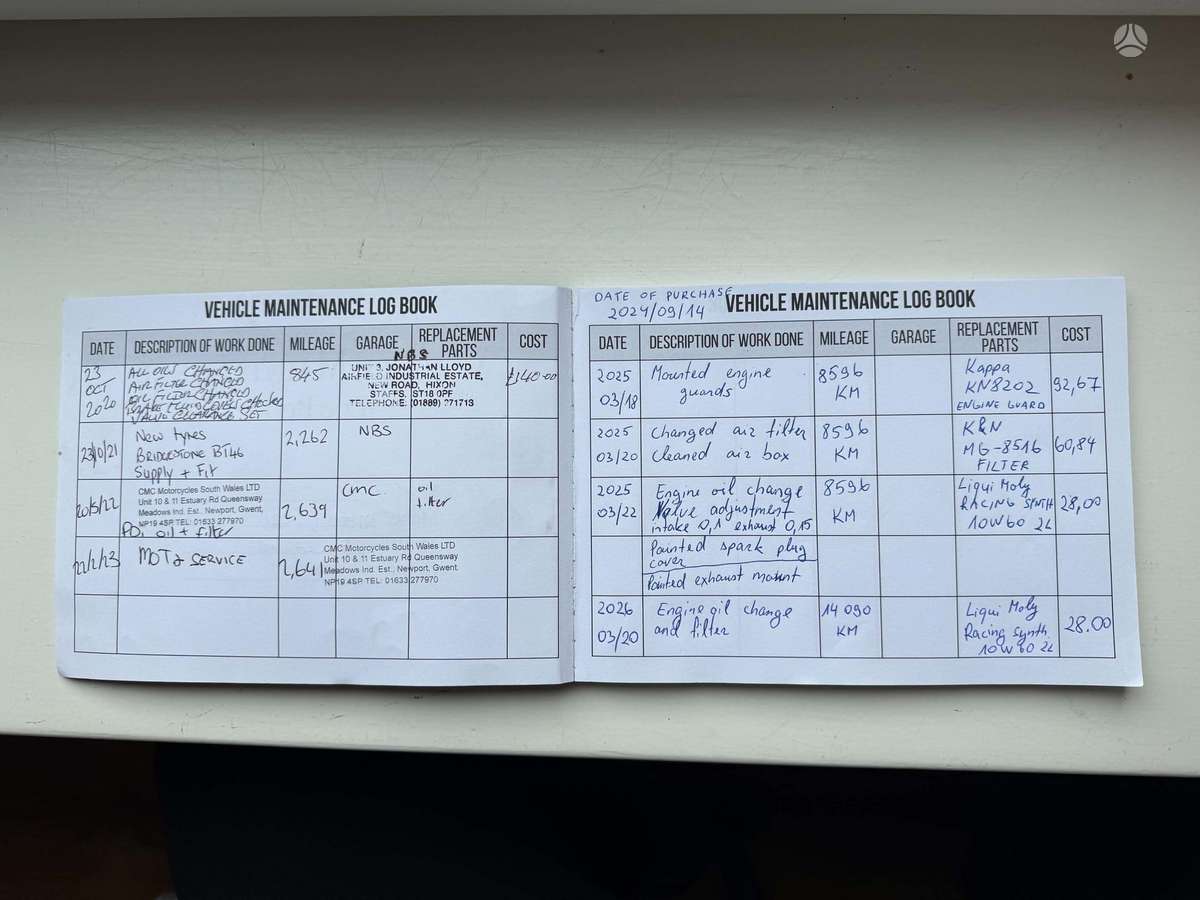 VEHICLE MAINTENANCE LOG BOOK
DATE DESCRIPTION OF WORK DONE MILEAGE GARAGE REPLACEMENT PARTS COST
23 OCT 2020
ALL OILS CHANGED
AIR FILTER CHANGED
OIL FILTER CHANGED
BRAKE FLUID LEVEL
VALVE CLEARANCE SET
845
NBS
UNIT 3, JONATHAN LLOYD
AIRFIELD INDUSTRIAL ESTATE,
NEW ROAD, HIXON
STAFFS, ST18 0PF
TELEPHONE: (01889) 271713
£140-00
New tyres
BRIDGESTONE BT46
Supply + Fit
2,262
NBS
20/5/22
CMC Motorcycles South Wales LTD
Unit 10 & 11 Estuary Rd Queensway
Meadows Ind. Est., Newport, Gwent,
NP19 4SP TEL: 01633 277970
PDi oil + filter
2,639
CMC
oil
filter
MOT & SERVICE
2,641
CMC Motorcycles South Wales LTD
Unit 10 & 11 Estuary Rd Queensway
Meadows Ind. Est., Newport, Gwent
NP19 4SP TEL: 01633 277970
DATE OF PURCHASE
2024/09/14
VEHICLE MAINTENANCE LOG BOOK
DATE DESCRIPTION OF WORK DONE MILEAGE GARAGE REPLACEMENT PARTS COST
2025
03/18
Mounted engine
guards
8596
KM
Kappa
KN8202
ENGINE GUARD
92,67
2025
03/20
Changed air filter
Cleaned air box
8596
KM
K&N
MG-8516
FILTER
60,84
2025
03/22
Engine oil change
Valve adjustment
intake 0,1 exhaust 0,15
8596
KM
Liqui Moly
RACING SYNTH
10W60 2L
28,00
Painted spark plug
cover
Painted exhaust mount
2026
03/20
Engine oil change
and filter
14 090
KM
Liqui Moly
Racing Synth
10W60 2L
28.00